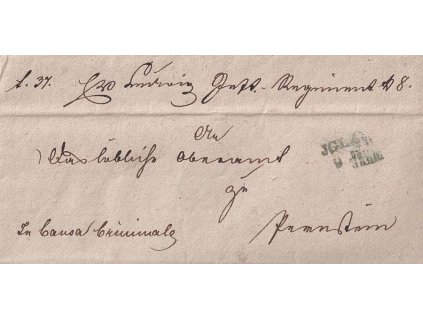 E. 37. Ludwig Inft. Regiment N 8.
An
Das löbliche Oberamt
zu
Pernstein
In Causa Criminale
IGLAU
9 JAN